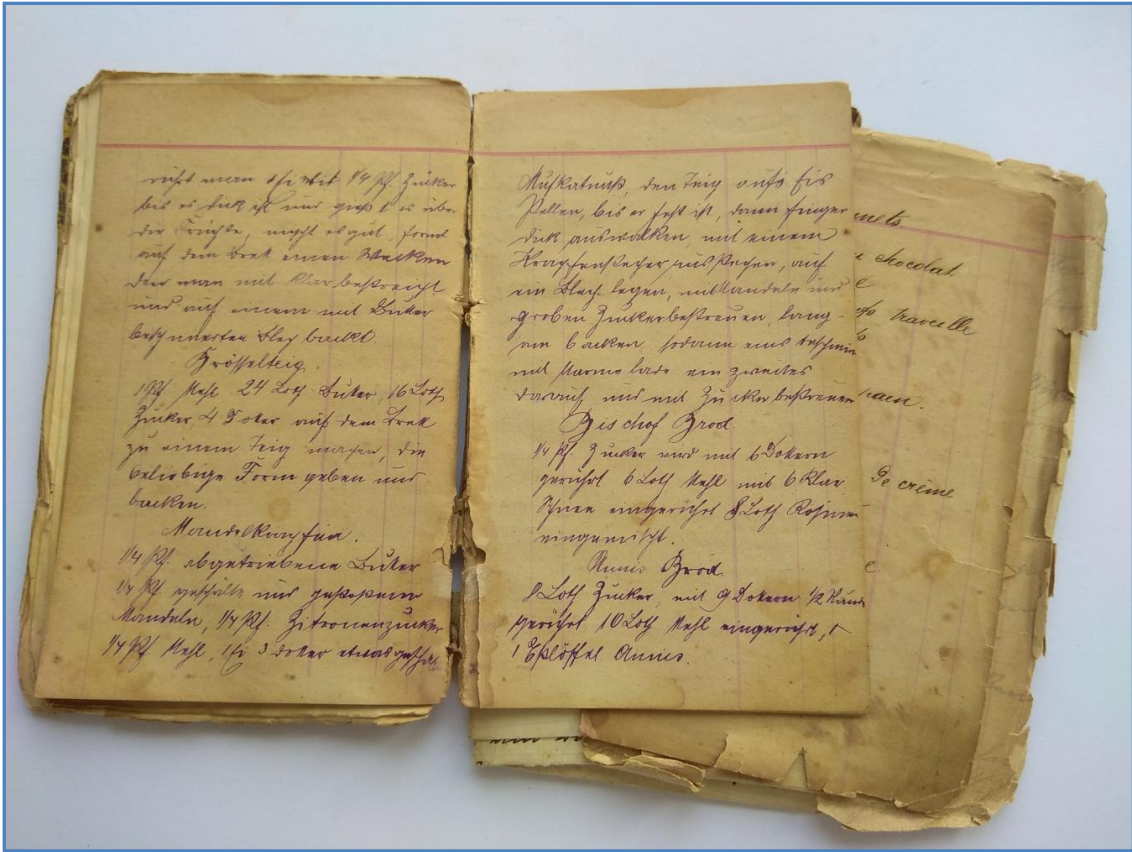 rührt man 1 Ei mit 1/4 Pf. Zucker
bis es dick ist und gießt es über
die Früchte, mischt es gut, formt
auf dem Bret einen Wecken
den man mit Klar bestreicht
und auf einem mit Buter
beschmierten Blech backt.
Brösselteig.
1 Pf. Mehl 24 Loth Buter, 16 Loth
Zucker 4 Doter auf dem Bret
zu einem Teig machen, die
beliebige Form geben und
backen.
Mandelkrapfen.
1/4 Pf. abgetriebene Buter
1/4 Pf. geschälte und gestoßene
Mandeln, 1/4 Pf. Zitronenzucker
1/4 Pf Mehl, 1 Ei 3 Doter etwas
Muskatnuß, den Teig aufs Eis
stellen, bis er fest ist, dann finger
dick auswalken, mit einem
Krapfenstecher ausstechen, auf
ein Blech legen, mit Mandeln und
groben Zucker bestreuen, lang-
sam backen, sodann eins
mit Marmelade ein zweites
darauf und mit Zucker bestreuen
Bischof Brod
1/4 Pf. Zucker wird mit 6 Dotern
gerührt 6 Loth Mehl mit 6 Klar
Schnee eingerührt 8 Loth Rosinen
eingemischt.
Annis Brod
8 Loth Zucker, mit 9 Dotern 1/2 Stunde
gerührt 10 Loth Mehl eingerührt,
1 Eßlöffel Annis.
chocolat
De crème